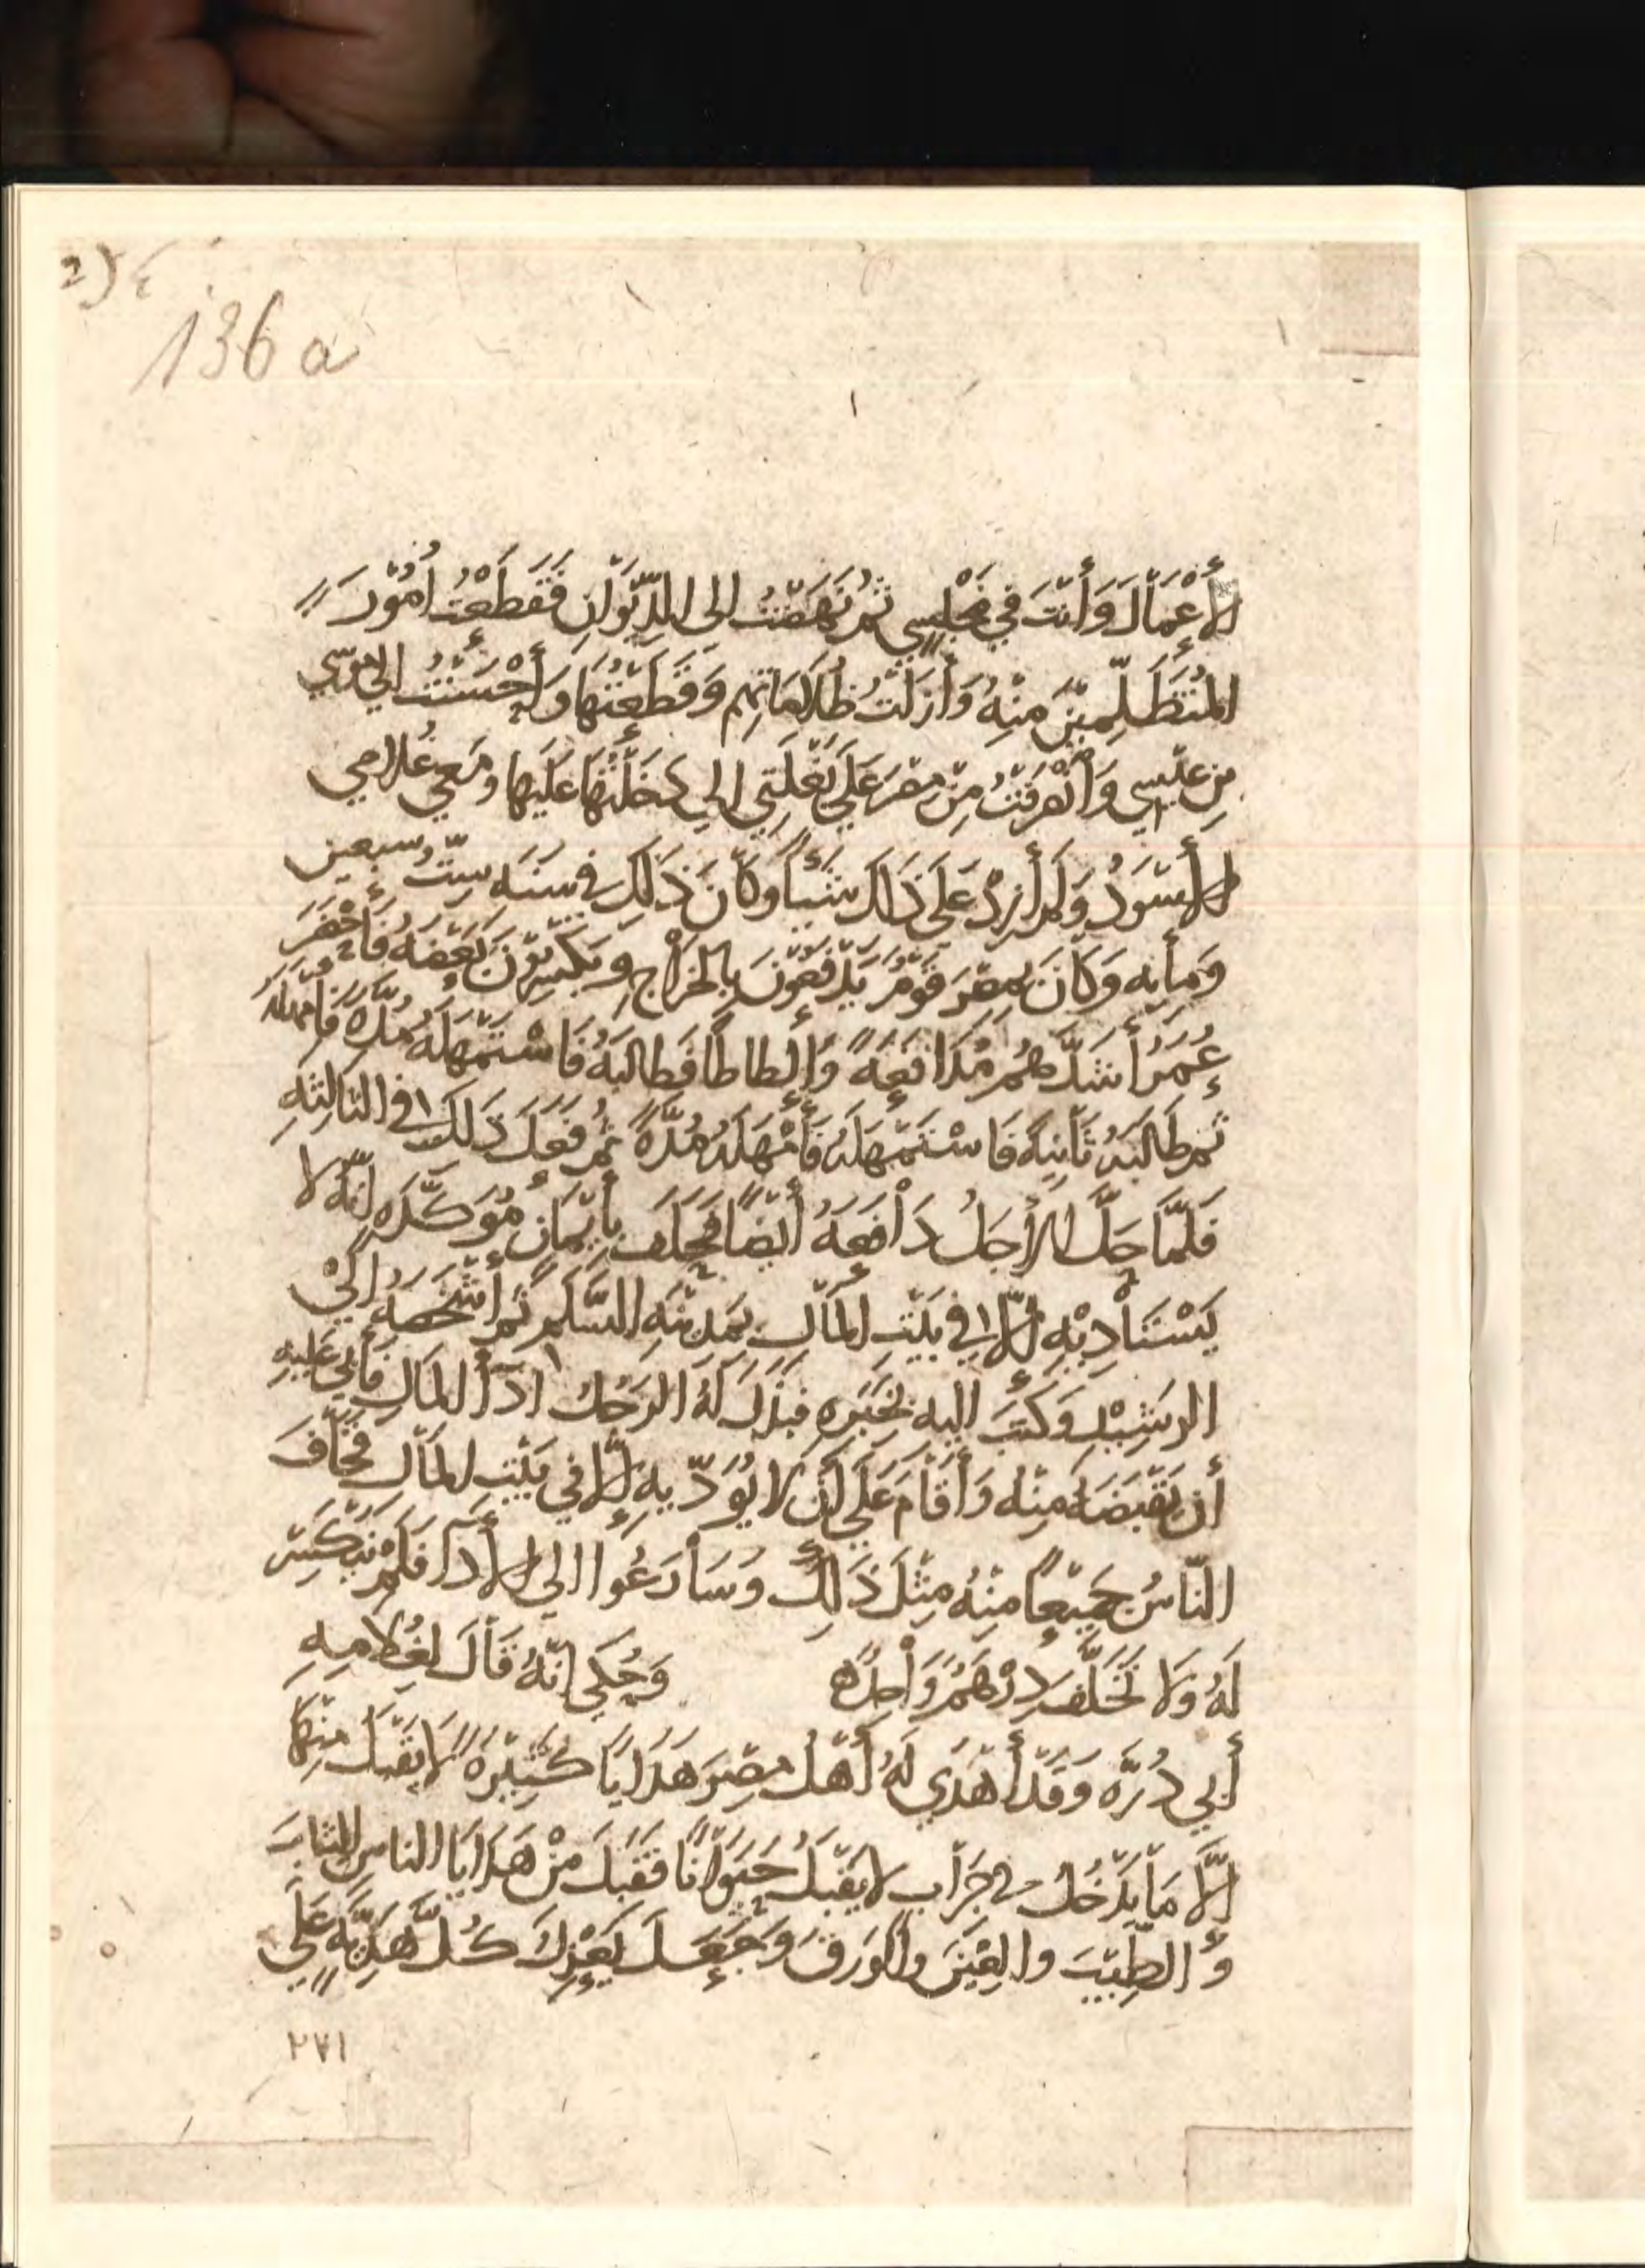 136 a
الأَعْمَالَ وَأَنْتَ فِي مَجْلِسِي ثُمَّ نَهَضْتُ إلى الدِّيوَانِ فَقَطَعْتُ أُمُوْرَ
المُتَظَلِّمِينَ مِنْهُ وَأَزَلْتُ ظُلَامَاتِهِم وَقَطَعْتُهَا وَأَحْسَنْتُ إلى مُوسَى
بن عِيسى وَانْصَرَفْتُ مِنْ مِصْرَ عَلَى بَغْلَتِي الي دَخَلْتُهَا عَلَيْهَا وَمَعِي غُلَامِي
الأَسْوَدُ وَلَمْ أَزِدْ عَلَى ذَاكَ شَيْئاً وكَانَ ذَلِكَ في سَنَه سِتّ وسبعين
وَمِأيه وَكَانَ بِمِصْرَ قَوْمٌ يَدْفَعُوْنَ بِالخَرَاجِ وَيَكْسِرُوْنَ بَعْضَهُ فَأَحْضَرَ
عُمَرُ أَشَدَّهُمْ مُدَافَعَةً وَإِلْطَاطاً فَطالبَهُ فَاسْتَمْهَلَهُ مُدَّةً فَأَمْهَلَهُ
ثم طَالَبَهُ ثَانِيَةً فَاسْتَمْهَلَهُ فَأَمْهَلَهُ مُدَّةً ثُمَّ فَعَلَ ذَلِكَ في الثالِثَهِ
فَلَمَّا حَلَّ الأَجَلُ دَافَعَهُ أَيْضاً فَحَلَفَ بِأَيْمَانٍ مُؤَكَّدَهٍ إنَّهُ لا
يَسْتَأْدِيْهِ إِلَّا فِي بَيْتِ المَالِ بِمَدِيْنَهِ السَّلَمِ ثُمَّ أَشْخَصَهُ إلَى
الرَشِيْدِ وَكَتَبَ اليه بِخَبَرِهِ فبَذَلَ لَهُ الرَجُلُ ادَآَ المَالِ فَأَبَى عَلَيهِ
أن يَقْبَضَهُ مِنْه وَأَقَامَ عَلَى أَن لَا يُؤَدّيهِ إِلَّا فِي بَيْتِ المَالِ فَخَافَ
النَّاسُ جَمِيْعًا مِنْهُ مِثْلَ ذَلِكَ وَسَارَعُوا الى الأَدَآَ فَلَمْ يَنْكَسِرْ
لَهُ وَلَا تَخَلَّفَ دِرْهَمٌ وَاحِدٌ ه وَحُكِى إنَّهُ قَالَ لِغُلَامِهِ
أَبِي دُرَّه وَقَدْ أَهْدَي لَهُ أَهْلُ مِصْرَ هَدَايَا كَثِيْرَةً لَا يَقْبَلُ مِنْهَا
إِلَّا مَا يَدْخُلُ في جِرَابِ لا يَقْبَلُ حَيَوَانًا فَقَبِلَ مِنْ هَدَايَا الناسِ الثيابَ
وَ الطِّيْبَ والعَيْنَ والوَرِقَ وَجَعَلَ يَعْزِلُ كُلَّ هَدِيَّهٍ عَلَى
٢٧١